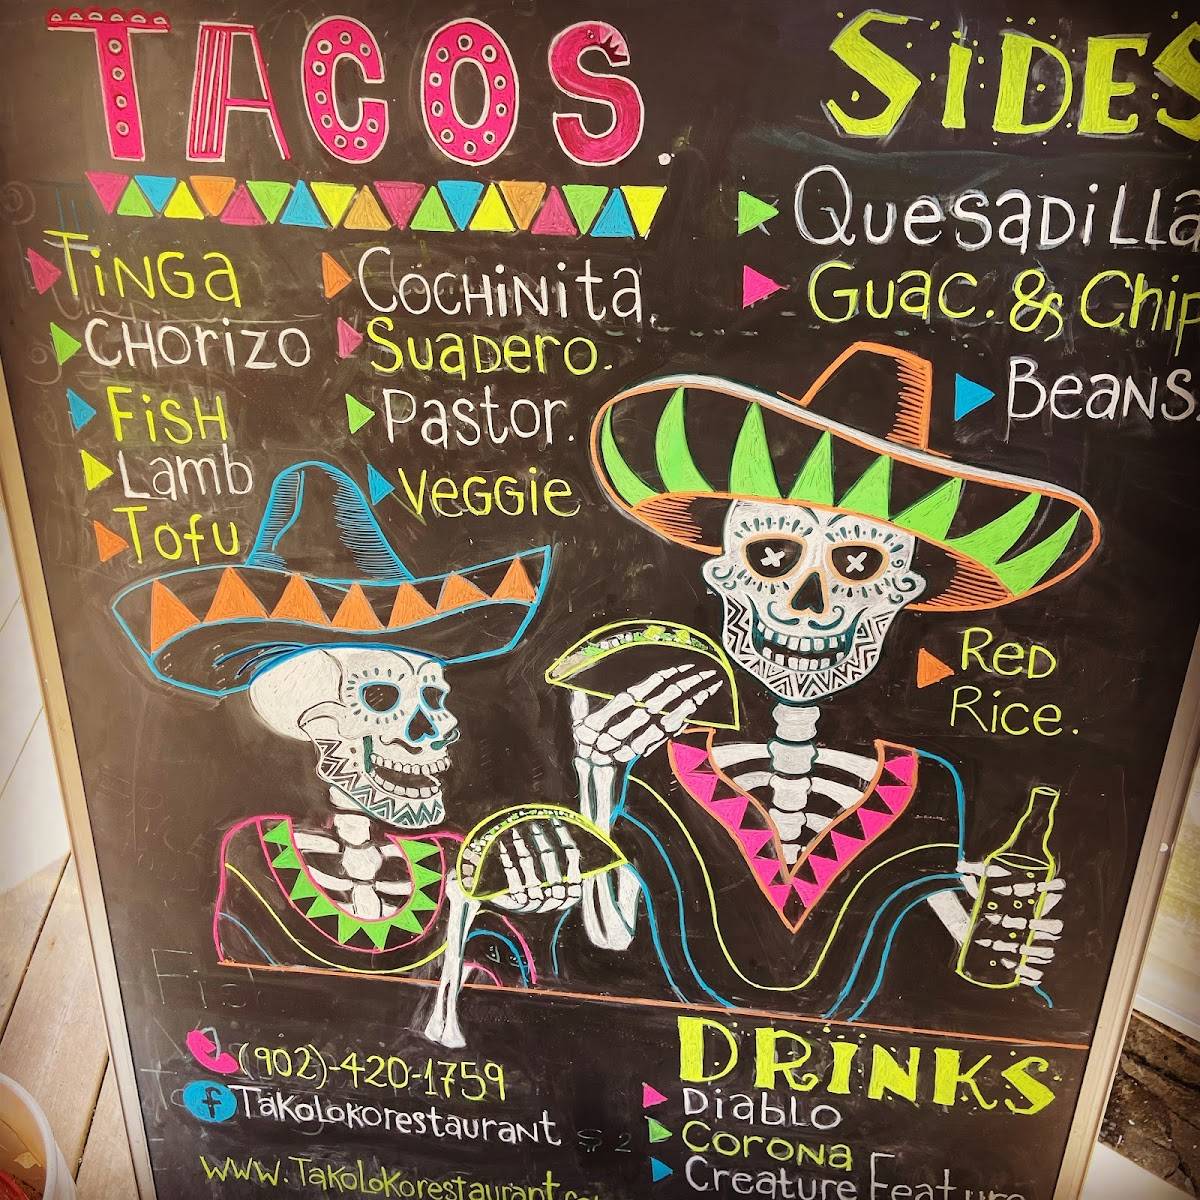 TACOS.
Tinga
Chorizo
Fish
Lamb
Tofu
Cochinita.
Suadero.
Pastor.
Veggie
SIDES
Quesadilla
Guac. & Chip
Beans
Red
Rice.
(902)-420-1759
f Takolokorestaurant
www.Takolokorestaurant.co
DRINKS
Diablo
Corona
Creature Featur